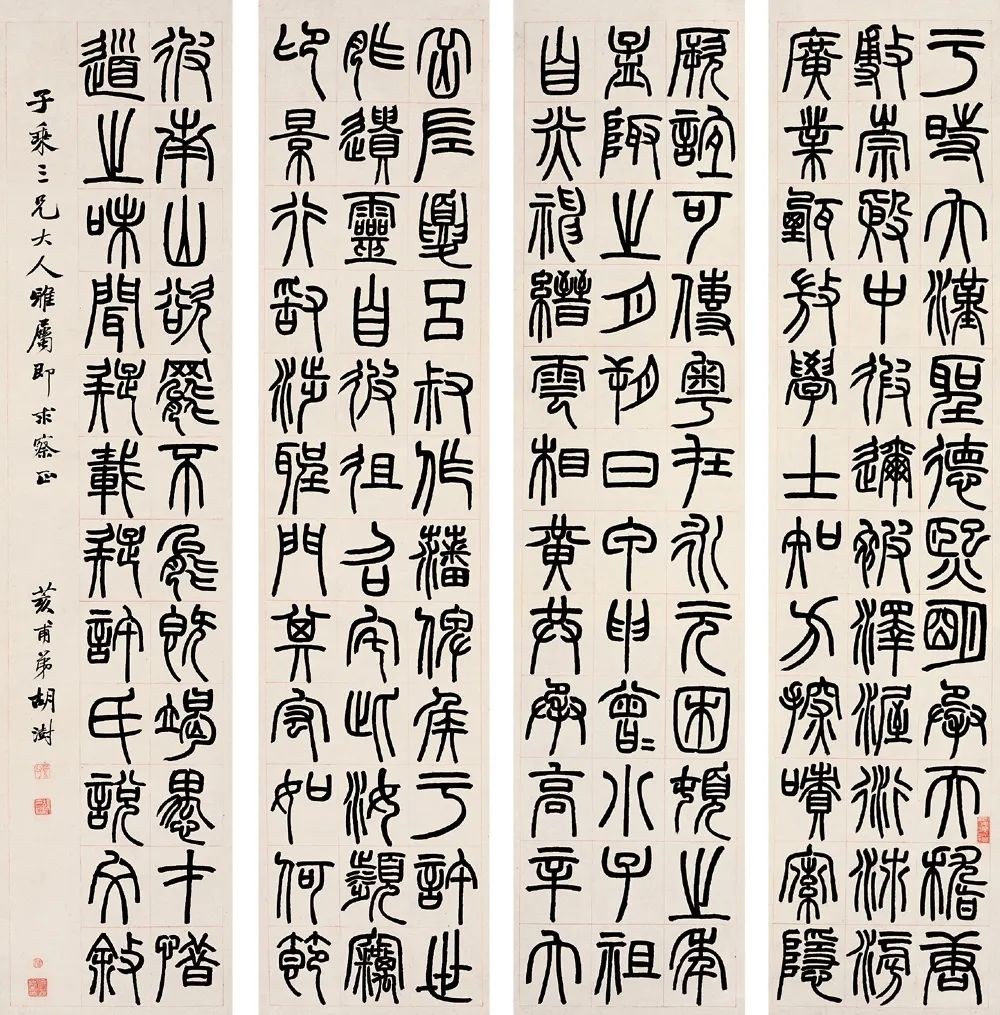 于時大漢聖德熙明承天稽唐
敷崇殷中遐邇被澤渥衍沛滂
廣業甄微學士知方探嘖索隱
厥誼可傳粵在永元困頓之年
孟陬之月朔日甲申曾〻小子祖
自炎神縉雲相黃共承高辛大
岳佐夏呂叔作藩俾侯于許世
胙遺靈自彼徂召宅此汝瀕竊
卬景行敢涉聖門其弘如何節
彼南山欲罷不能既竭愚才惜
道之味聞疑載疑許氏說文敘
子乘三兄大人雅屬即求察正
荄甫弟胡澍